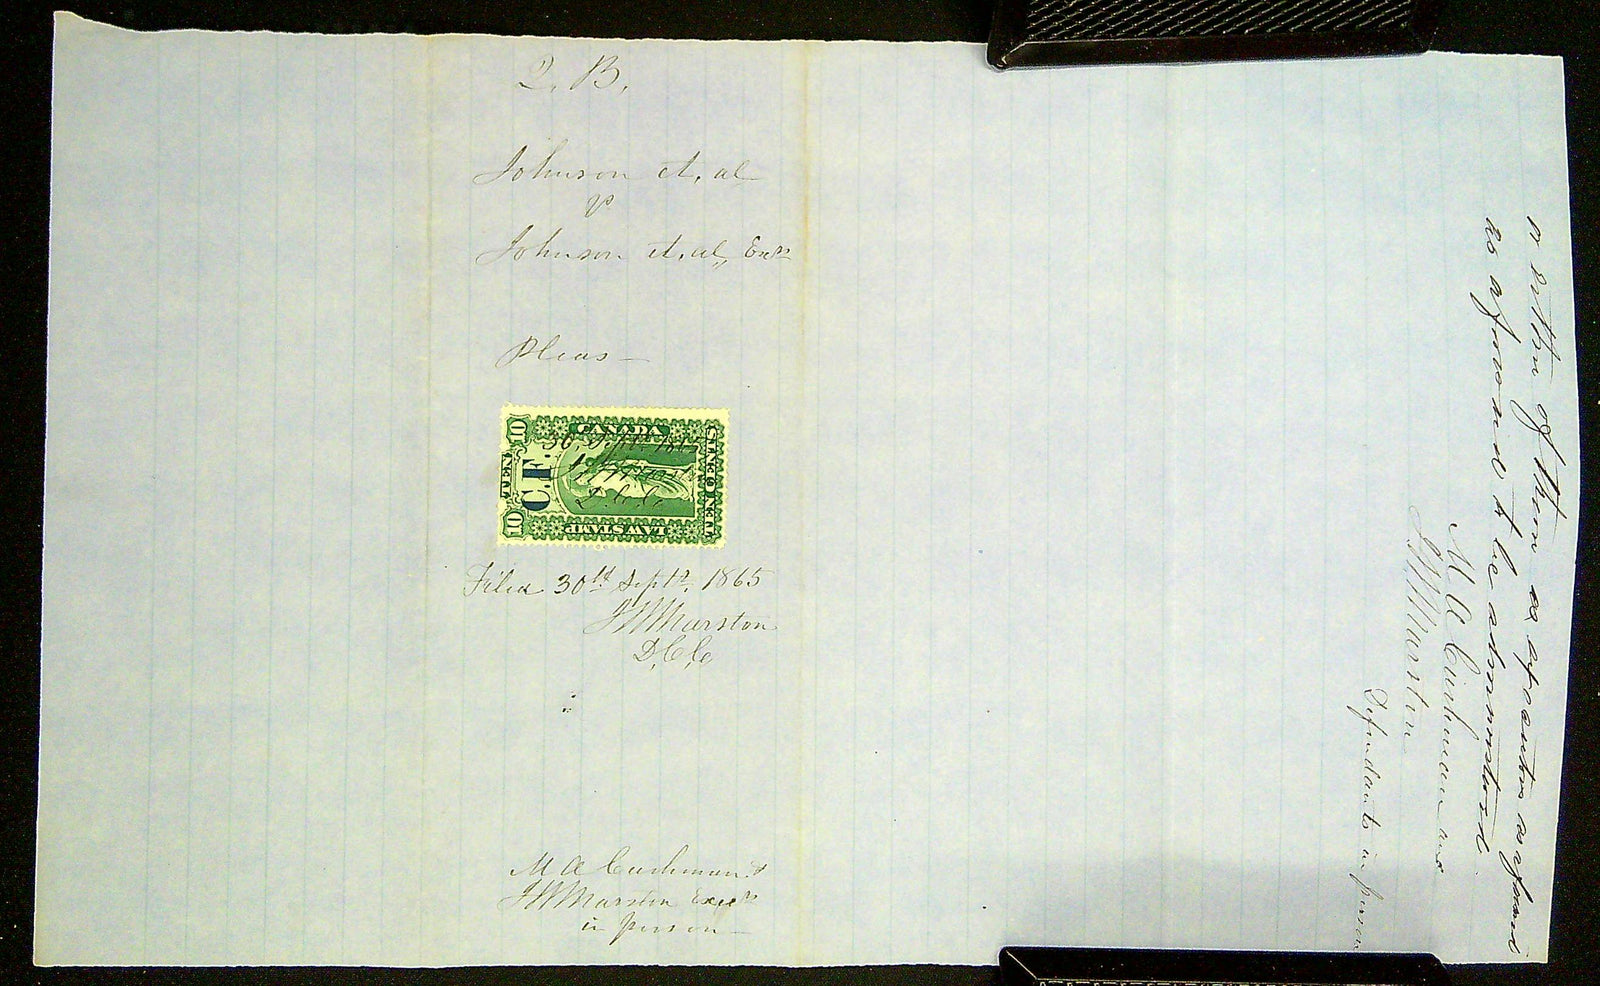 Q. B.
Johnson et. al
vs
Johnson et. al, Exrs
Pleas—
CANADA
TEN CENTS
LAW STAMP
TEN
10
10
C.F.
30 Sept. 1865
D. C. C.
Filed 30th Sept. 1865
JWMarston
D, C, C,
M A Cushman &
JWMarston Exrs
in person—
or either of them as executors or executrix
as aforesaid to be administered.
M A Cushman and
JWMarston
Defendants in person